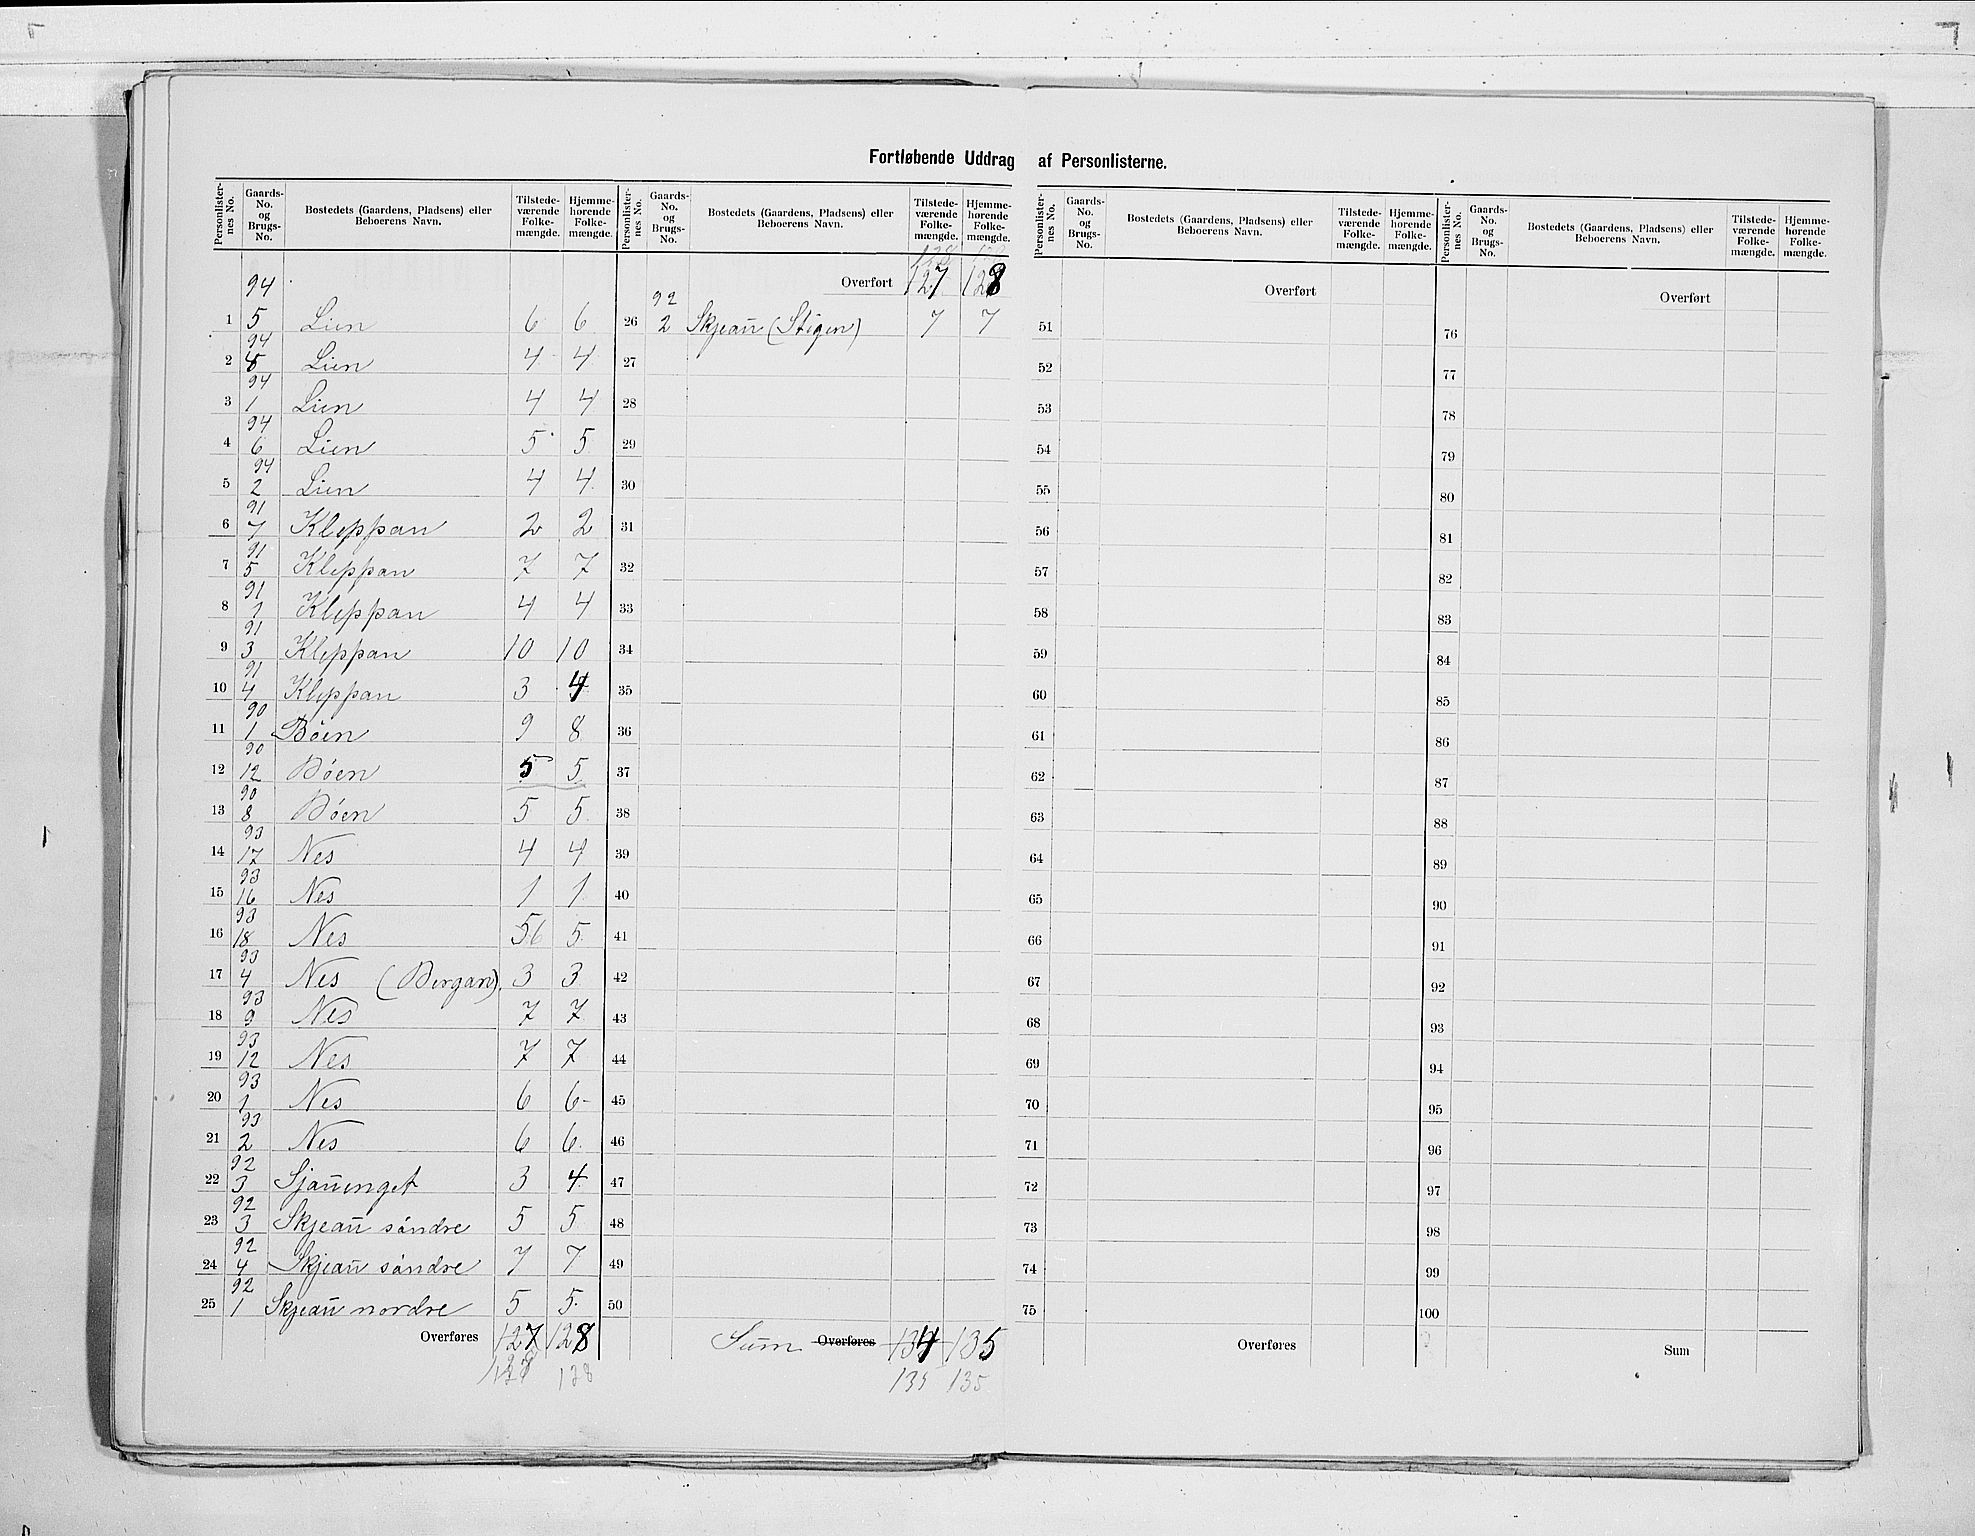 Fortløbende Uddrag af Personlisterne.
Personlister-nes No. | Gaards-No. og Brugs-No. | Bostedets (Gaardens, Pladsens) eller Beboerens Navn. | Tilstede-værende Folke-mængde. | Hjemme-hørende Folke-mængde.
1 | 94 5 | Lien | 6 | 6
2 | 94 | Lien | 4 | 4
3 | 94 1 | Lien | 4 | 4
4 | 94 6 | Lien | 5 | 5
5 | 94 2 | Lien | 4 | 4
6 | 91 7 | Kleppan | 2 | 2
7 | 91 5 | Kleppan | 7 | 7
8 | 91 1 | Kleppan | 4 | 4
9 | 91 3 | Kleppan | 10 | 10
10 | 91 4 | Kleppan | 3 | 4
11 | 90 1 | Böen | 9 | 8
12 | 90 12 | Böen | 5 | 5
13 | 90 8 | Böen | 5 | 5
14 | 93 17 | Nes | 4 | 4
15 | 93 16 | Nes | 1 | 1
16 | 93 18 | Nes | 5 6 | 5
17 | 93 4 | Nes (Bergan) | 3 | 3
18 | 93 9 | Nes | 7 | 7
19 | 93 12 | Nes | 7 | 7
20 | 93 1 | Nes | 6 | 6
21 | 93 2 | Nes | 6 | 6
22 | 92 3 | Sjauenget | 3 | 4
23 | 92 3 | Skjeau söndre | 5 | 5
24 | 92 4 | Skjeau söndre | 7 | 7
25 | 92 1 | Skjeau nordre | 5 | 5
Overføres 127 128
128
Personlister-nes No. | Gaards-No. og Brugs-No. | Bostedets (Gaardens, Pladsens) eller Beboerens Navn. | Tilstede-værende Folke-mængde. | Hjemme-hørende Folke-mængde.
128 128
Overført 127 128
26 | 92 2 | Skjeau (Stigen) | 7 | 7
27
28
29
30
31
32
33
34
35
36
37
38
39
40
41
42
43
44
45
46
47
48
49
50
Sum Overføres 134 135
135 135
Personlister-nes No. | Gaards-No. og Brugs-No. | Bostedets (Gaardens, Pladsens) eller Beboerens Navn. | Tilstede-værende Folke-mængde. | Hjemme-hørende Folke-mængde.
Overført
51
52
53
54
55
56
57
58
59
60
61
62
63
64
65
66
67
68
69
70
71
72
73
74
75
Overføres
Personlister-nes No. | Gaards-No. og Brugs-No. | Bostedets (Gaardens, Pladsens) eller Beboerens Navn. | Tilstede-værende Folke-mængde. | Hjemme-hørende Folke-mængde.
Overført
76
77
78
79
80
81
82
83
84
85
86
87
88
89
90
91
92
93
94
95
96
97
98
99
100
Sum